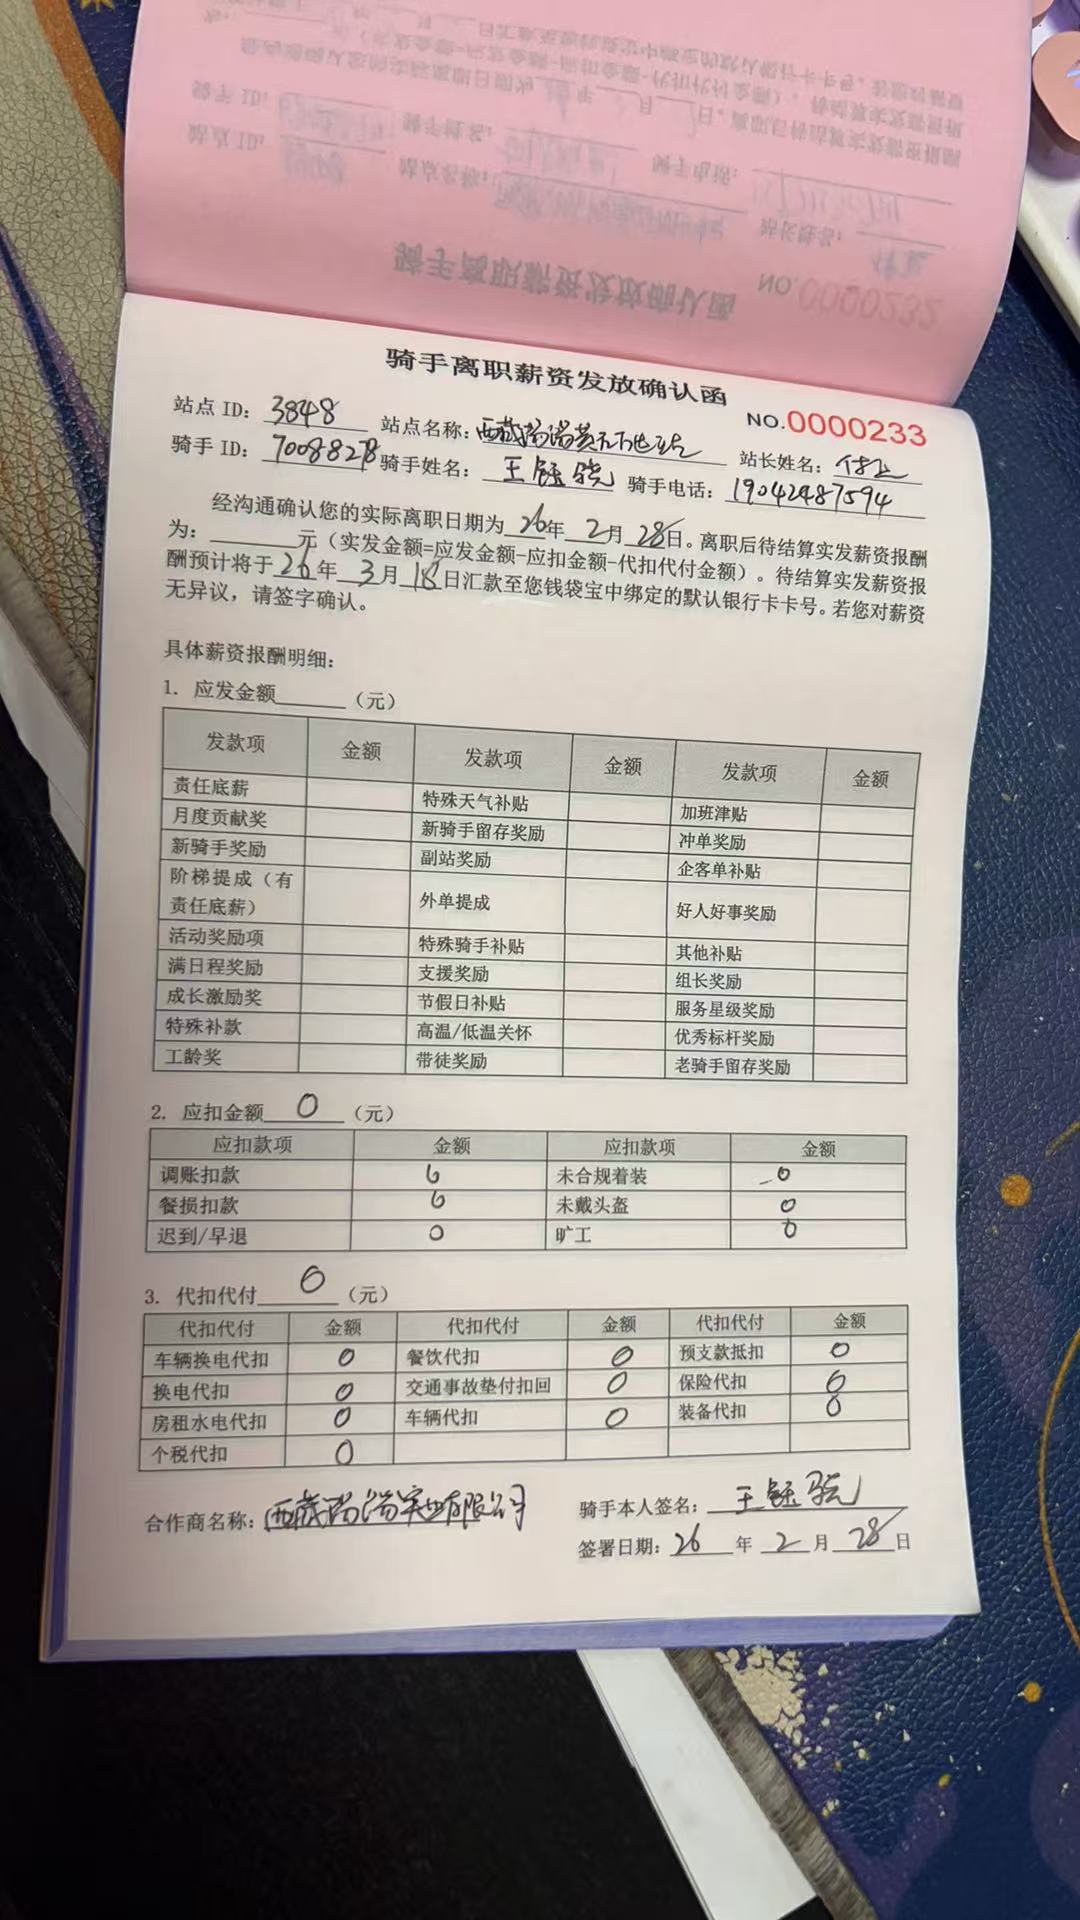 骑手离职薪资发放确认函
NO.0000233
站点 ID: 3848 站点名称: 西藏 站 站长姓名:
骑手 ID: 7008828 骑手姓名: 王钰骁 骑手电话: 19042487594
经沟通确认您的实际离职日期为 26 年 2 月 28 日。离职后待结算实发薪资报酬
为:______元（实发金额=应发金额-应扣金额-代扣代付金额）。待结算实发薪资报
酬预计将于 26 年 3 月 18 日汇款至您钱袋宝中绑定的默认银行卡卡号。若您对薪资
无异议，请签字确认。
具体薪资报酬明细:
1. 应发金额______（元）
发款项 金额 发款项 金额 发款项 金额
责任底薪 特殊天气补贴 加班津贴
月度贡献奖 新骑手留存奖励 冲单奖励
新骑手奖励 副站奖励 企客单补贴
阶梯提成（有责任底薪） 外单提成 好人好事奖励
活动奖励项 特殊骑手补贴 其他补贴
满日程奖励 支援奖励 组长奖励
成长激励奖 节假日补贴 服务星级奖励
特殊补款 高温/低温关怀 优秀标杆奖励
工龄奖 带徒奖励 老骑手留存奖励
2. 应扣金额 0 （元）
应扣款项 金额 应扣款项 金额
调账扣款 0 未合规着装 0
餐损扣款 0 未戴头盔 0
迟到/早退 0 旷工 0
3. 代扣代付 0 （元）
代扣代付 金额 代扣代付 金额 代扣代付 金额
车辆换电代扣 0 餐饮代扣 0 预支款抵扣 0
换电代扣 0 交通事故垫付扣回 0 保险代扣 0
房租水电代扣 0 车辆代扣 0 装备代扣 0
个税代扣 0
合作商名称: 西藏 实业有限公司 骑手本人签名: 王钰骁
签署日期: 26 年 2 月 28 日